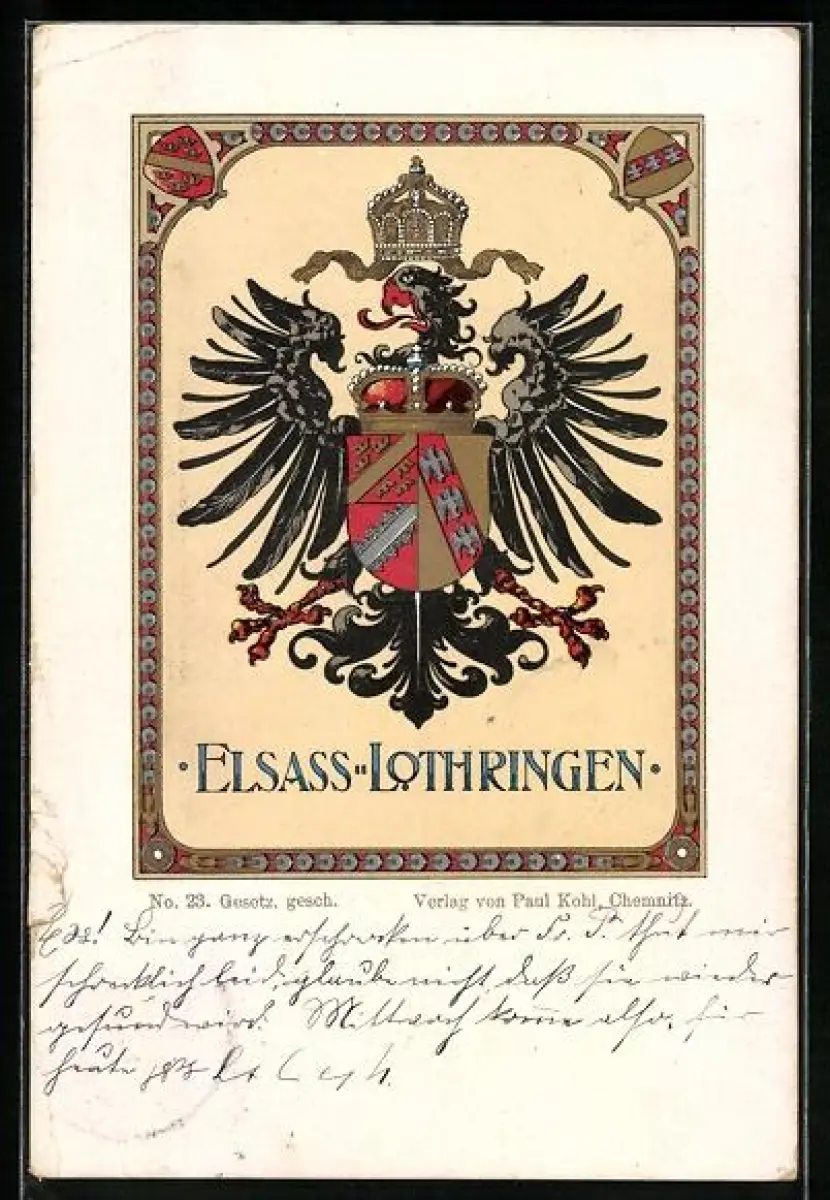 · ELSASS-LOTHRINGEN ·
No. 23. Gesetz. gesch. Verlag von Paul Kohl, Chemnitz.
Bin ganz erschrocken über Fr. P. thut mir
schrecklich leid, glaube nicht, daß sie wieder
gesund wird. Mittwoch komme also, für
heute